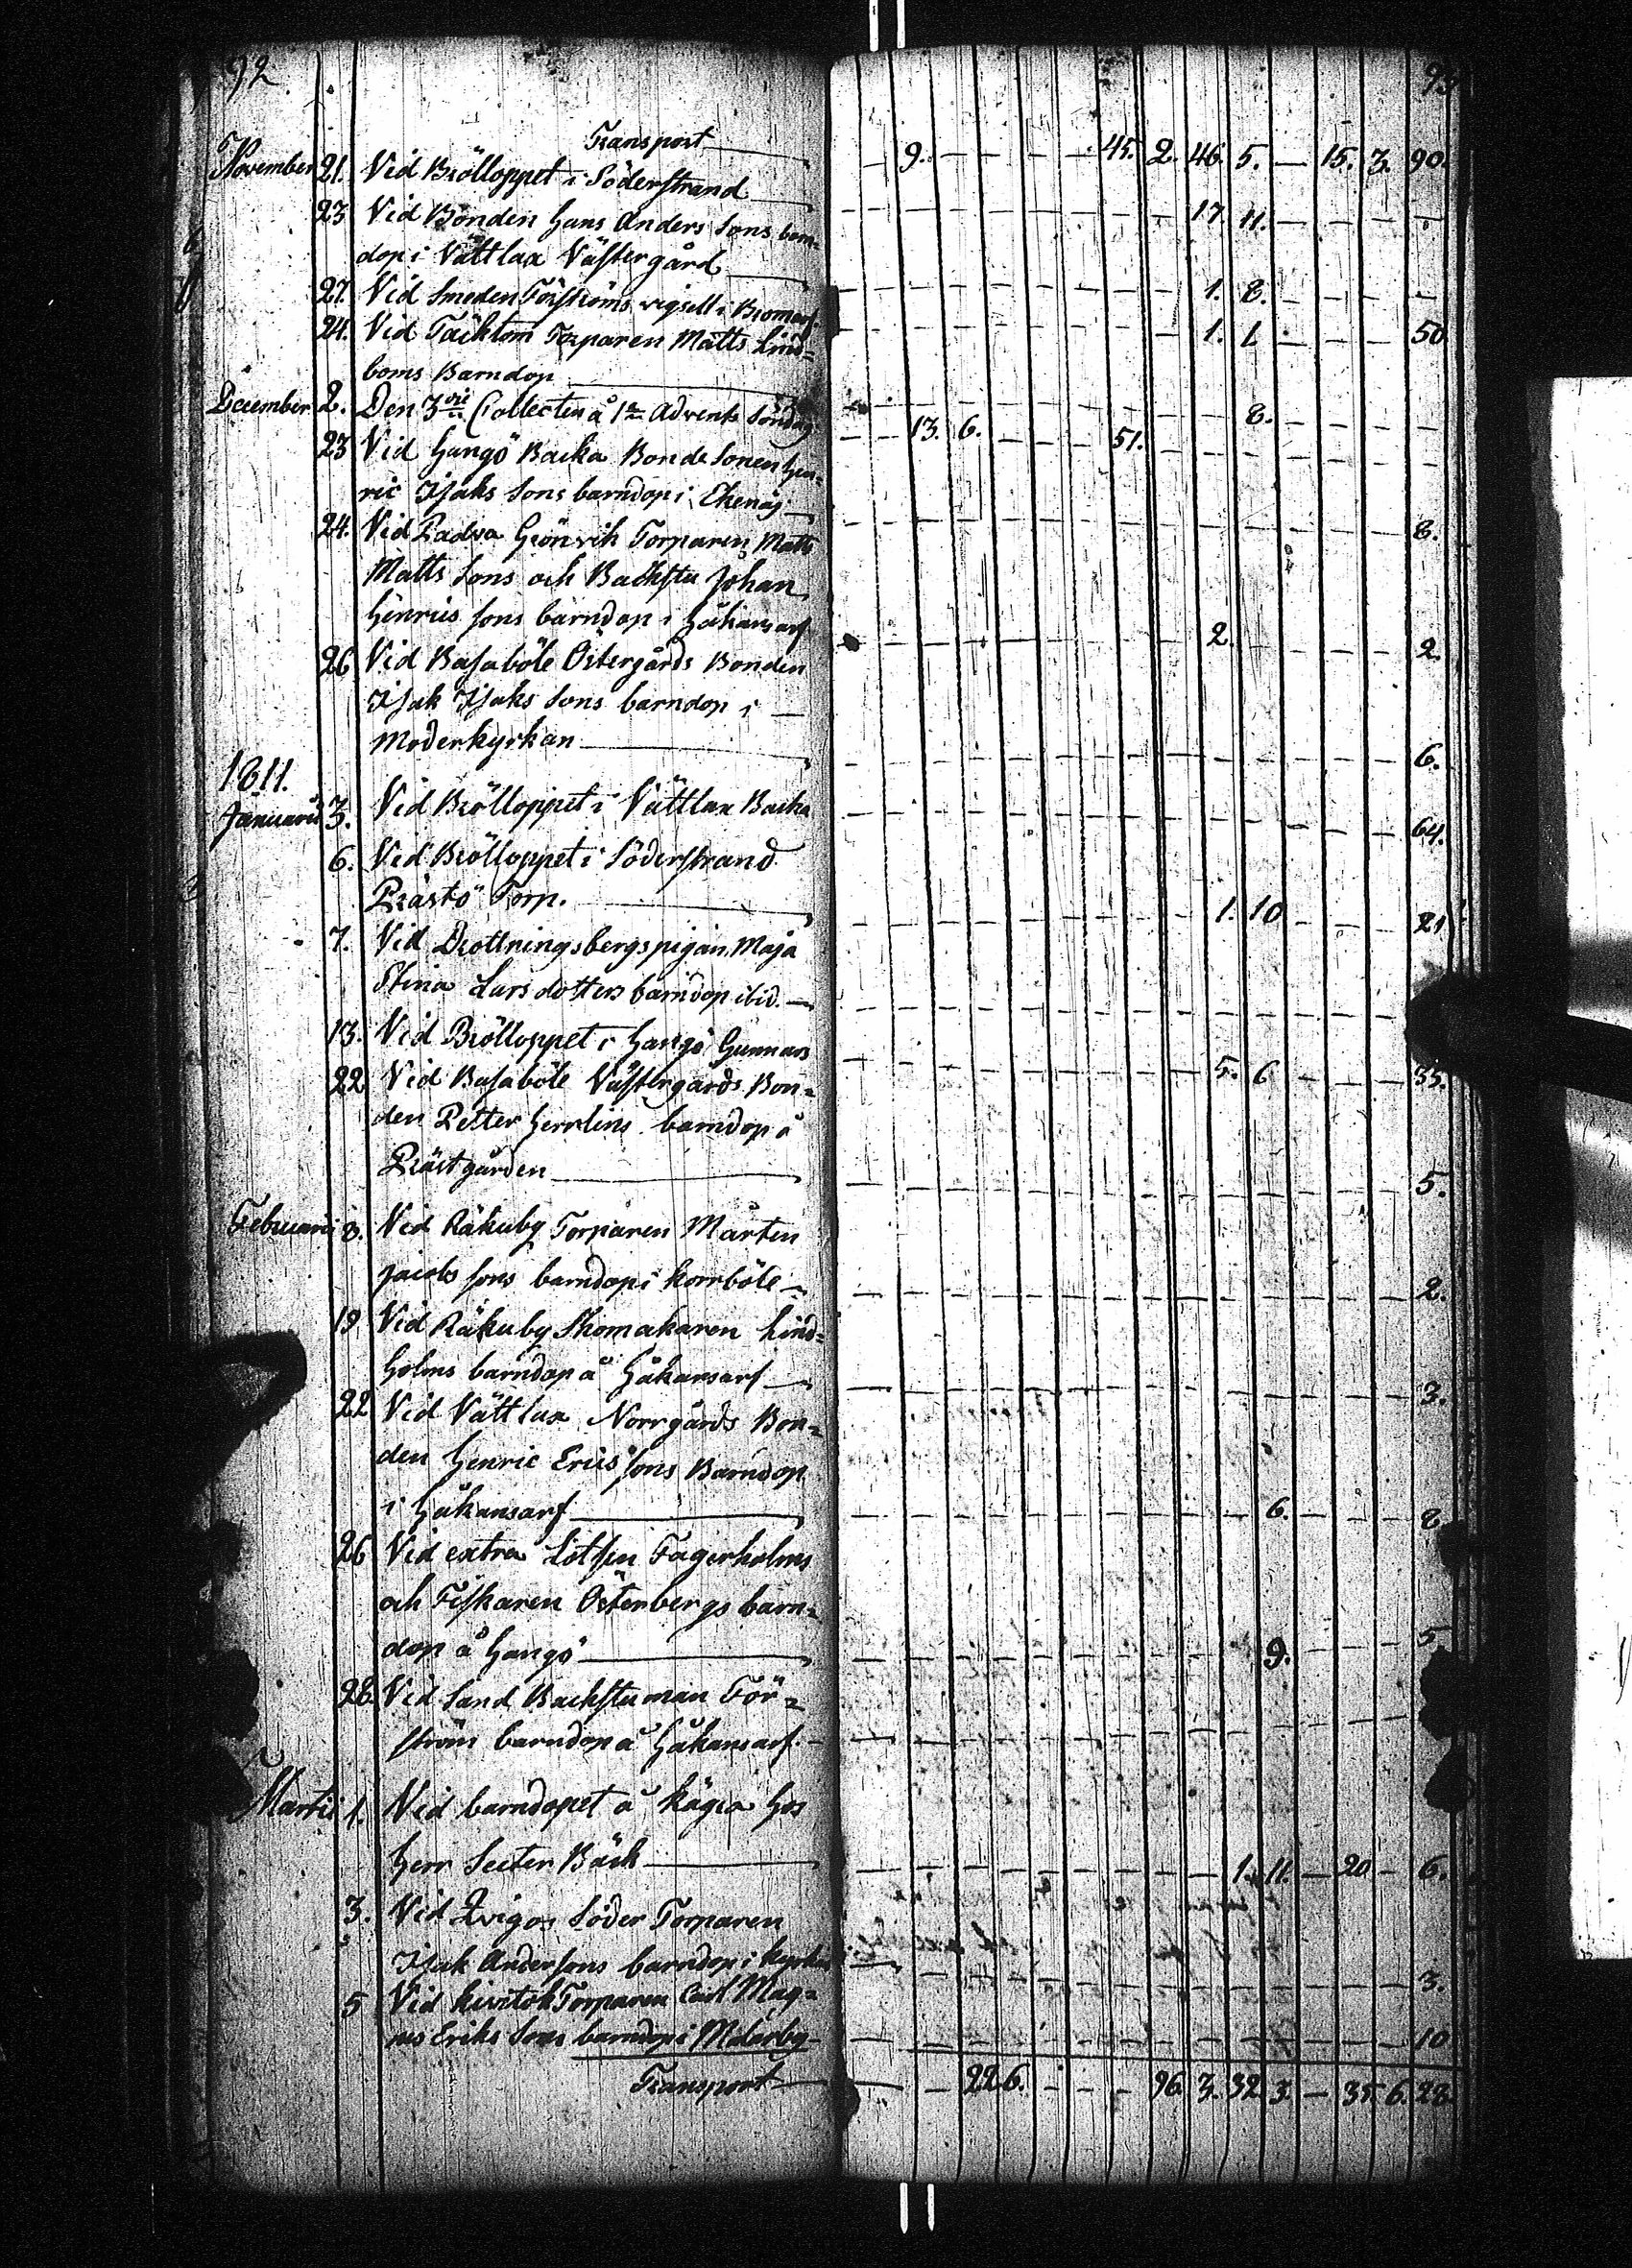 92 93
Transport — 9. — — — — 45. 2. 46. 5. — 15. 3. 90.
November 21. Vid Brölloppet i Söderstrand — — — — — — — — 17. 11. — — — —
23 Vid Bonden Hans Anders Sons barn=
dop i Vättlax Västergård — — — — — — — — 1. 8. — — — —
27. Vid Smeden Förströms vigsell i Bromarf — — — — — — — — 1. 1. — — — 50
24. Vid Täcktom Torparen Matts Lind=
boms Barndop — — — — — — — — — 8. — — — —
December 2. Den 3die Collecten å 1a Advents Söndag — — 13. 6. — — — 51. — — — — — — —
23 Vid Hangö Backa Bonde Sonen Hen=
ric Isaks Sons barndop i Ekenäs — — — — — — — — — — — — — 8.
24. Vid Padva Grönvik Torparen Matts
Matts Sons och Backstu Johan
Henrics sons barndop i Håkansarf — — — — — — — — 2. — — — — 2.
26 Vid Basaböle Östergårds Bonden
Isak Isaks Sons barndop i —
Moderkyrkan — — — — — — — — — — — — — 6.
1811.
Januarii 3. Vid Brölloppet i Vättlax Backa — — — — — — — — — — — — — 64.
6. Vid Brölloppet i Söderstrand
Prästö Torp. — — — — — — — — 1. 10 — — — 21
7. Vid Drottningsbergs pigan Maja
Stina Lars dotters barndop ibid. — — — — — — — — — — — — —
13. Vid Brölloppet i Hangö Gunnars — — — — — — — — 5. 6 — — — 35.
22 Vid Basaböle Västergårds Bon=
den Petter Herrlins barndop å
Prästgården — — — — — — — — — — — — — 5.
Februarii 8. Vid Råkuby Torparen Mårten
Jacobs sons barndop i Korrböle — — — — — — — — — — — — — 2.
19 Vid Råkuby Skomakaren Lind=
holms barndop å Håkansarf — — — — — — — — — — — — — 3.
22 Vid Vättlax Norrgårds Bon=
den Henric Erics sons Barndop
i Håkansarf — — — — — — — — — 6. — — — 8.
26 Vid extra Lotsen Fagerholms
och Fiskaren Österbergs barn=
dop å Hangö — — — — — — — — — 9. — — — 5
28. Vid Sand Backstuman För=
ströms barndop å Håkansarf. — — — — — — — — — — — — —
Martii 1. Vid barndopet å Kägra hos
Herr Secter Bäck — — — — — — — — 1. 11. — 20 — 6.
3. Vid Söder Torparen
Isak Andersons barndop i kyrkan — — — — — — — — — — — — — 3.
5 Vid Torparen Carl Mag=
nus Eriks Sons barndop i — — — — — — — — — — — — — 10
Transport — — — 22 6. — — — 96 3. 32 3. — 35 6. 28